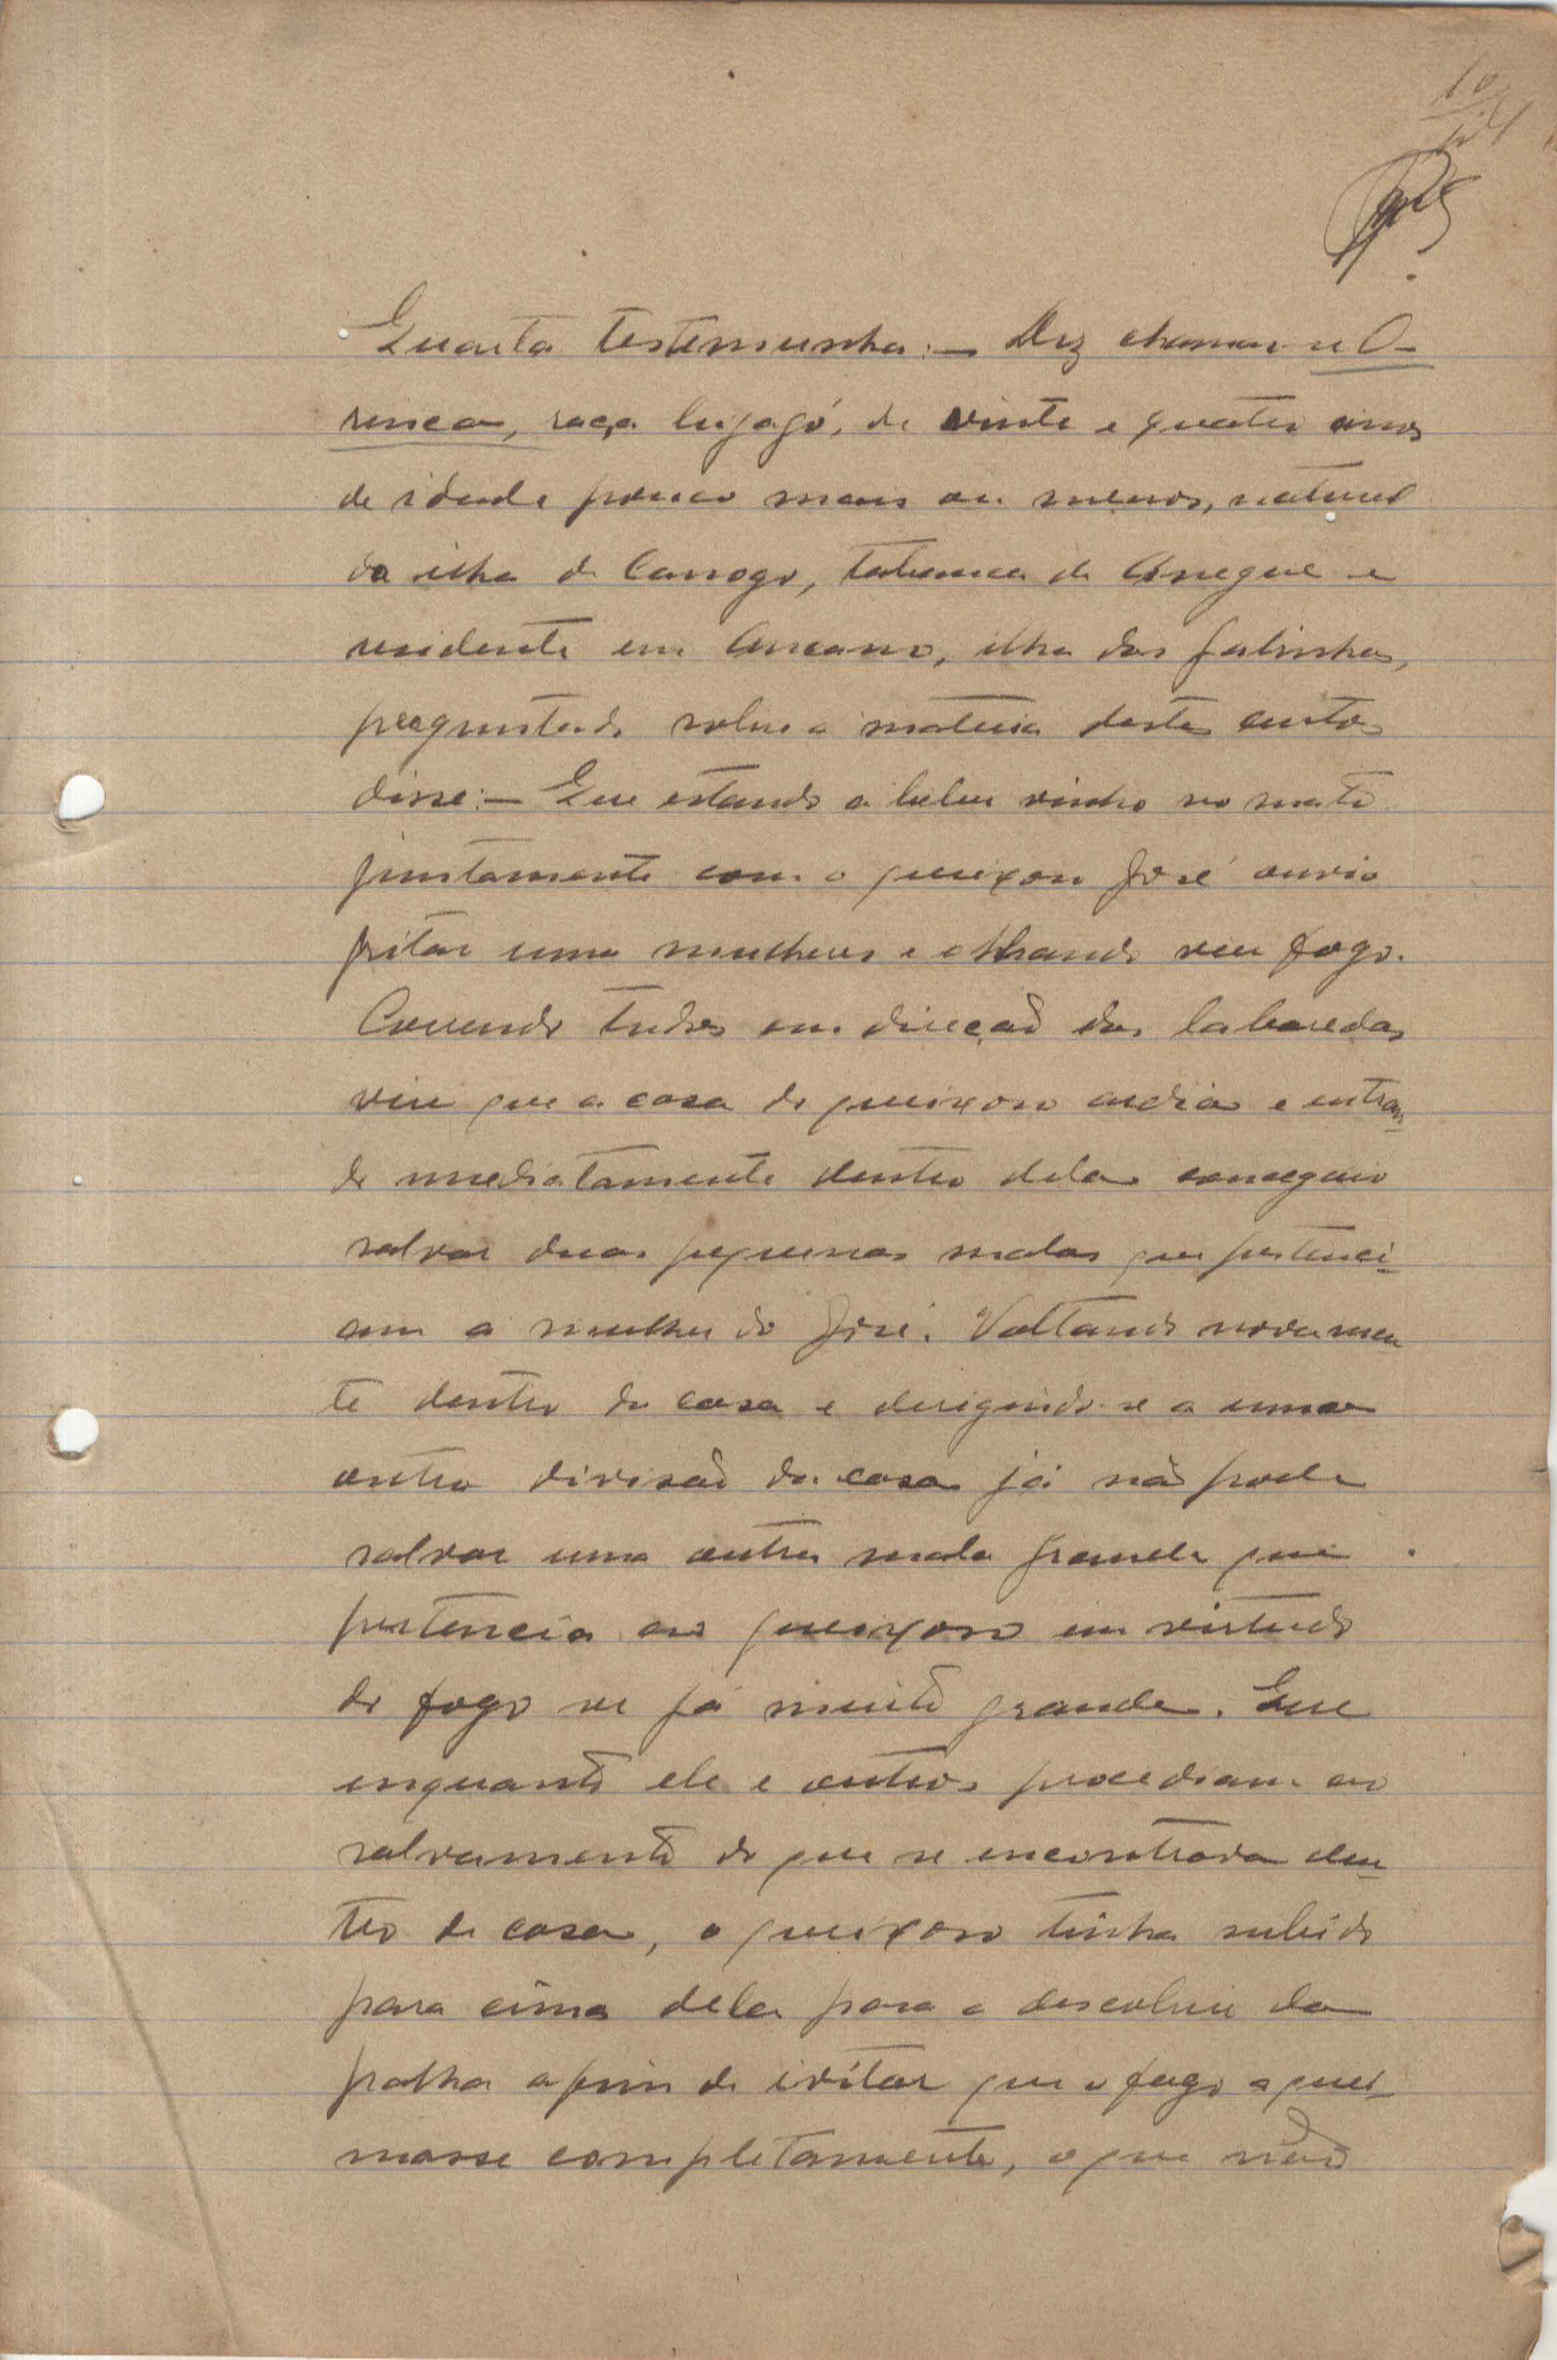 10
Quarta testemunha:— Diz chamar-se O-
renca, raça bijagó, de vinte e quatro anos
de idade pouco mais ou menos, natural
da ilha de Canogo, tabanca de Anegue e
residente em Ancano, ilha das Galinhas,
preguntado sobre a materia destes autos
disse:— Que estando a beber vinho no mato
juntamente com o queixoso José ouvio
gritar uma mulheres e olhando viu fogo.
Correndo todos em direcção das labaredas
viu que a casa do queixoso ardia e entran-
do imediatamente dentro dela conseguio
salvar duas pequenas malas que pertenci-
am a mulher do José. Voltando novamen
te dentro da casa e derigindo-se a uma
outra divisão da casa já não poude
salvar uma outra mala grande que
pertencia ao queixoso em virtude
do fogo ser já muito grande. Que
enquanto ele e outros procediam ao
salvamento do que se encontrava den-
tro de casa, o queixoso tinha subido
para cima dela para a descobrir da
palha afim de ivitar que o fogo a quei-
masse completamente, o que não